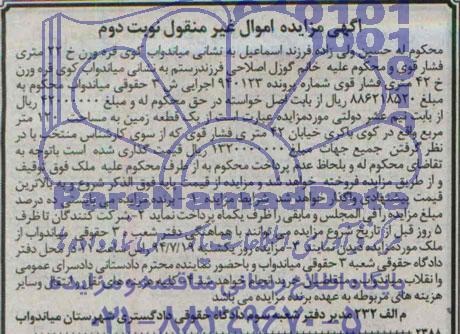 آگهی مزایده اموال غیر منقول نوبت دوم
محکوم له حسین ولی زاده فرزند اسماعیل به نشانی میاندواب کوی قره ورن خ ۲۲ متری
فشار قوی و محکوم علیه خانم گوزل اصلاحی فرزند رستم به نشانی میاندواب کوی قره ورن
خ ۴۲ متری فشار قوی شماره پرونده ۹۴۰۱۲۳ اجرایی ش ۳ حقوقی میاندواب محکوم به
مبلغ ۸۸۶۲۱۸۵۲ ریال از بابت اصل خواسته در حق محکوم له و مبلغ ۴۲۰۰۰۰۰ ریال
از بابت نیم عشر دولتی مورد مزایده عبارت است یک قطعه زمین به مساحت ۱۲۰ متر
مربع واقع در کوی باکری خیابان ۴۲ متری فشار قوی که از سوی کارشناس منتخب با در
نظر گرفتن جمیع جهات مبلغ ریال قیمت گذاری شده است باتوجه به
تقاضای محکوم له و بلحاظ عدم پرداخت محکوم به از طرف محکوم علیه ملک فوق توقیف
و از طریق مزایده فروخته خواهد شد و مزایده از قیمت پایه فوق الذکر شروع و به بالاترین
قیمت پیشنهادی واگذار خواهد شد شرایط مزایده ۱- برنده مزایده می بایستی ده درصد
مبلغ مزایده را فی المجلس و مابقی را ظرف یکماه پرداخت نماید ۲- شرکت کنندگان تا ظرف
۵ روز قبل از تاریخ شروع مزایده می توانند با هماهنگی دفتر شعبه ۳ حقوقی میاندواب از
ملک مورد مزایده دیدن نمایند ۳- مزایده روز یکشنبه ۹۴/۷/۱۹ محل دفتر
دادگاه حقوقی شعبه ۳ حقوقی میاندواب و با حضور نماینده محترم دادستانی دادسرای عمومی
و انقلاب میاندواب و متقاضیان خرید انجام خواهد شد ۴- کلیه هزینه های نقل و انتقال وسایر
هزینه های مربوطه به عهده برنده مزایده می باشد
م الف ۲۲۲ مدیر دفتر شعبه سوم دادگاه حقوقی دادگستری شهرستان میاندواب
ParsNamadData
۰۲۱-۸۸۳۴۹۶۷۰-۵